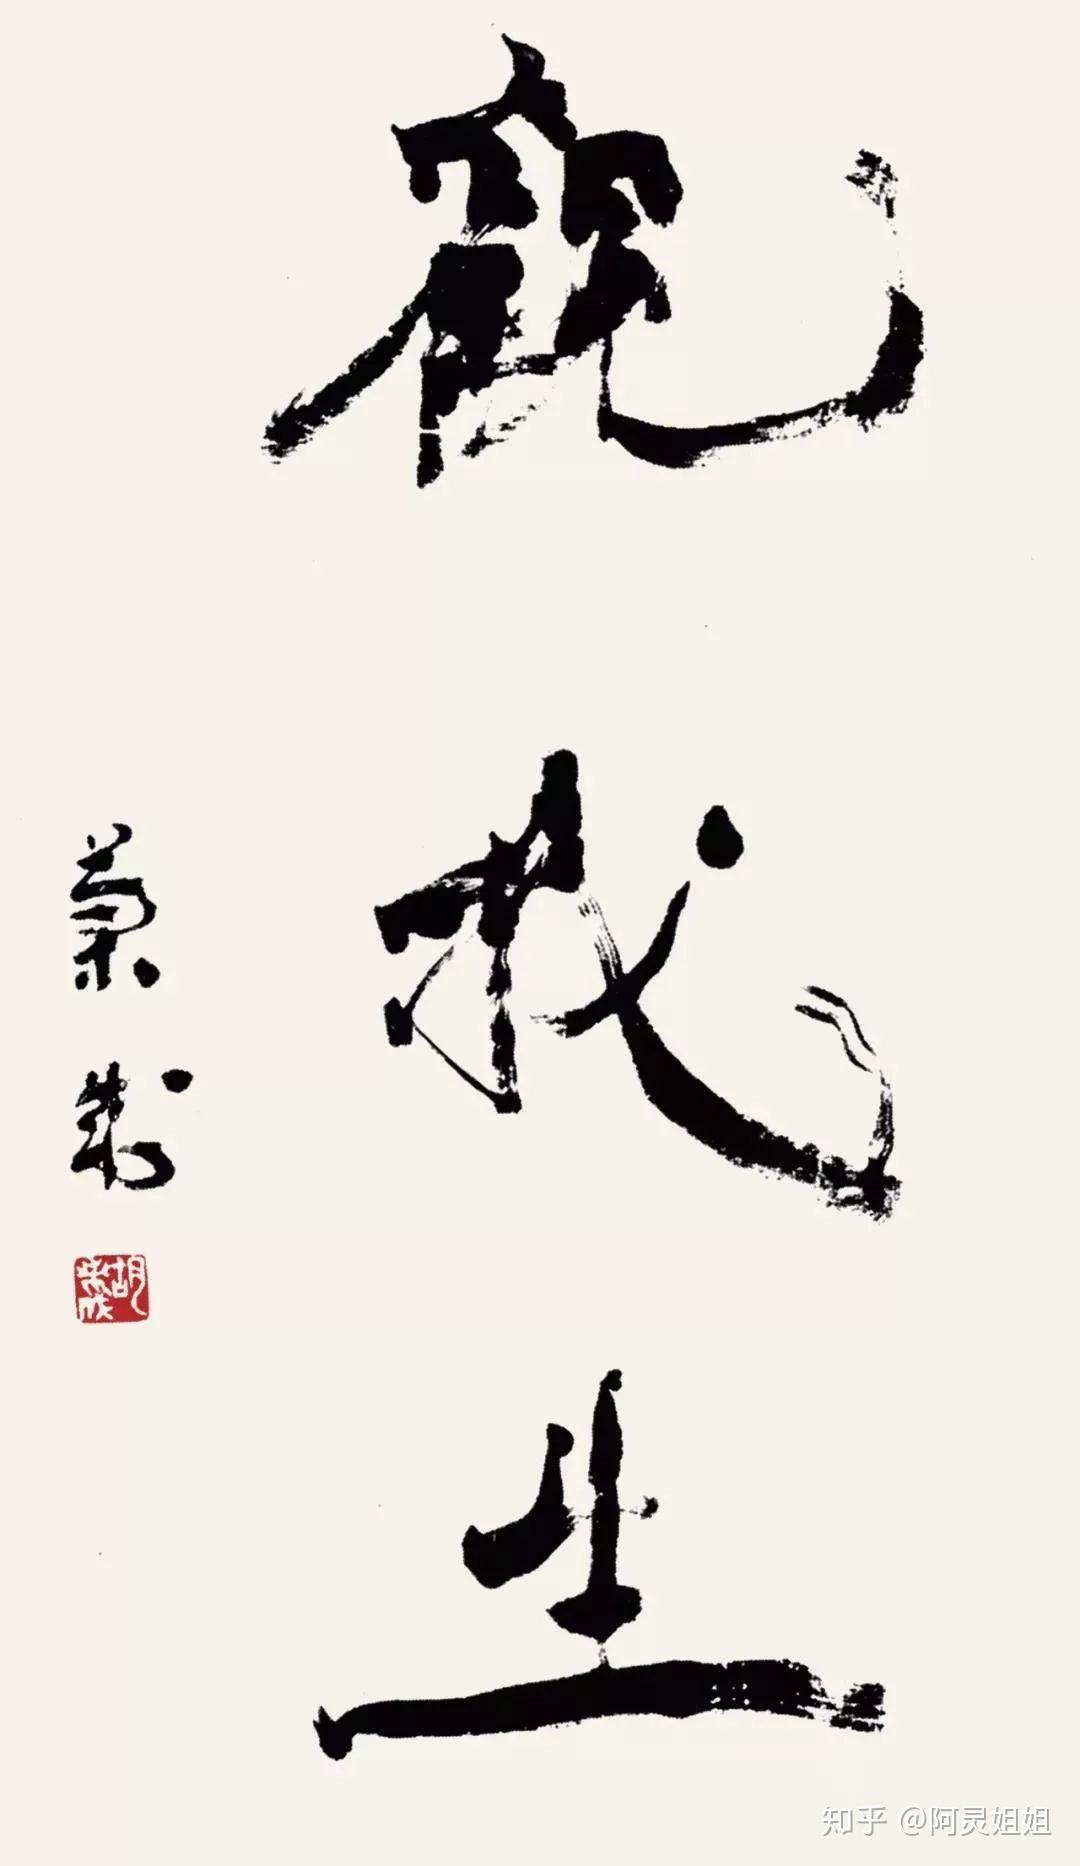 觀我生
蘭成
胡蘭成
知乎 @阿灵姐姐